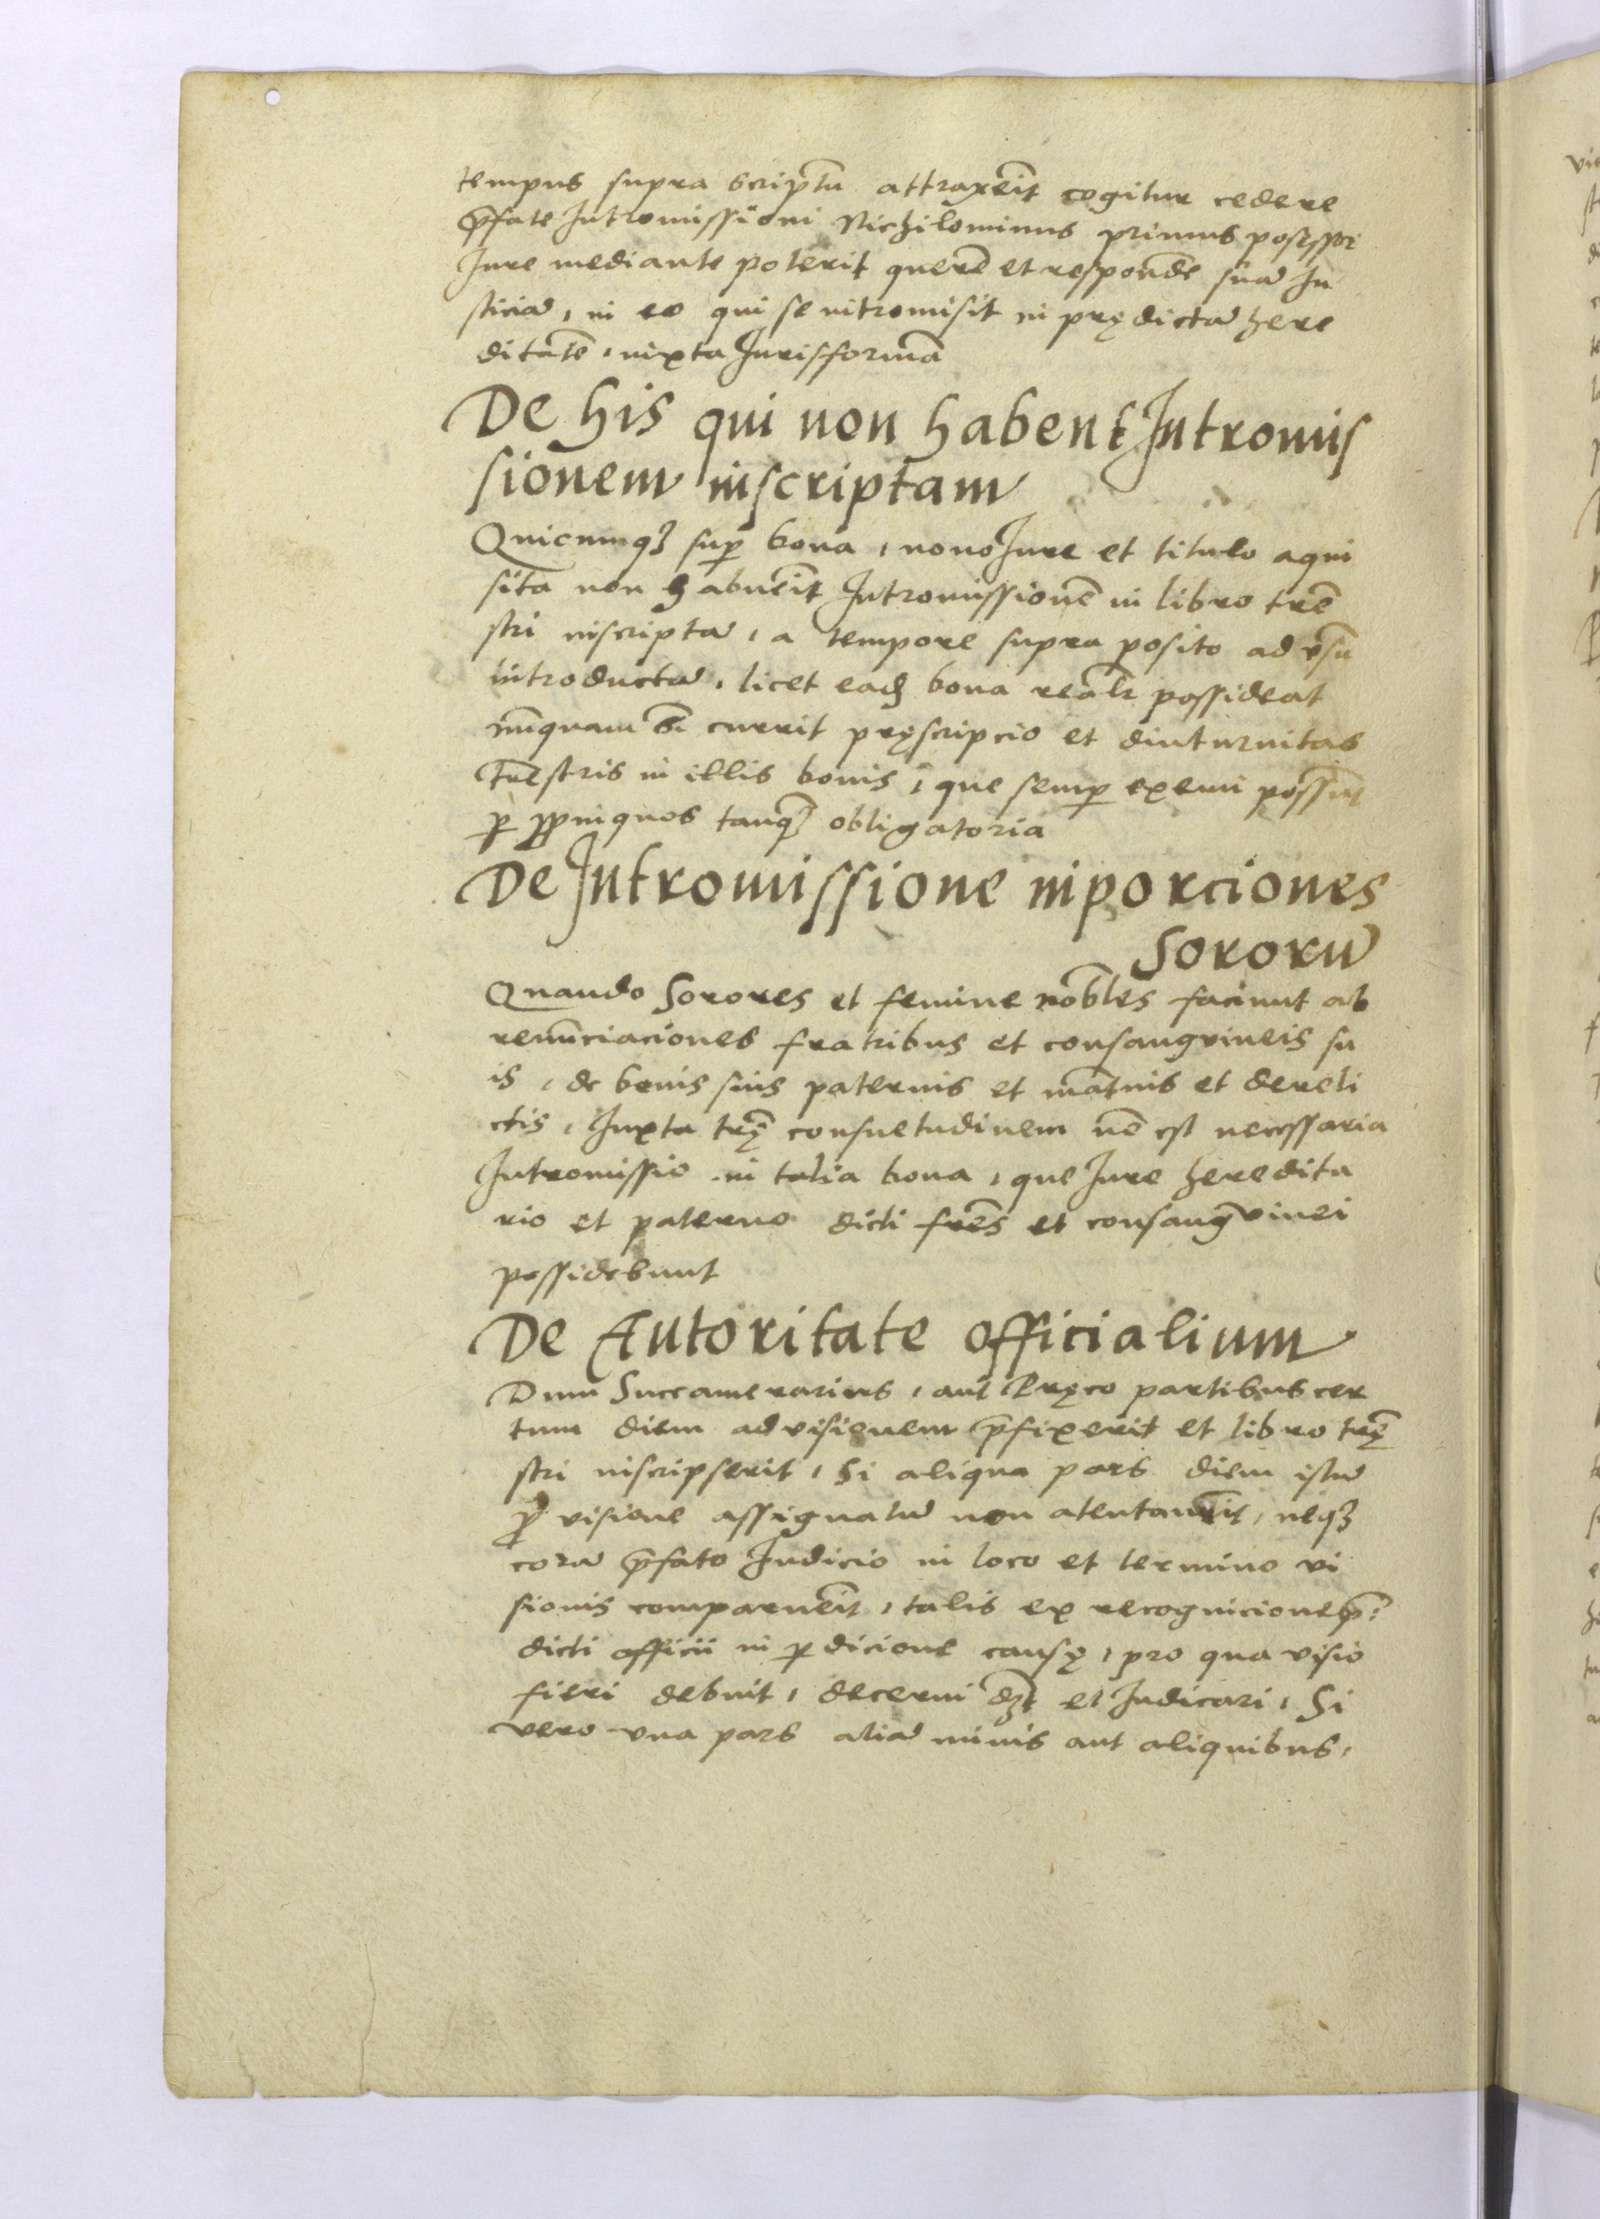 tempus supra scriptū attraxeīt cogitur cedere
p̄fate Intromissioni Nichilominus primus possessor
Iure mediante poterit querē et respondē suā Iu
sticiā, in eo qui se intromisit in prędictā here
ditatē, iuxta Iuris formā
De his qui non habent Intromis
sionem inscriptam
Quicunqꝫ suꝑ bona, nouo Iure et titulo aqui
sita non habueīt Intromissionē in libro trē
stri inscriptā, a tempore supra posito ad vsū
introductā, licet eadꝫ bona realr̄ possideat
nūquam sī currit pręscripcio et diuturnitas
trēstris in illis bonis, que semꝑ exemi possūt
ꝑ ꝓpinquos tanqꝫ obligatoria
De Intromissione in porciones
Sororū
Quando Sorores et femine nōbles faciunt ab
renūciaciones fratribus et consangvineis su
is, de bonis suis paternis et māt'nis et dereli
ctis, Iuxta tr̄ę consuetudinem nē est necessaria
Intromissio in talia bona, que Iure heredita
rio et paterno dicti frēs et consangvinei
possidebunt
De Autoritate officialium
Dum Succamerarius, aut Pręco partibus cer
tum diem ad visionem p̄fixerit et libro tr̄ę
stri inscripserit, Si aliqua pars diem istū
ꝓ visione assignatū non atentaueīt, neqꝫ
corā p̄fato Iudicio in loco et termino vi
sionis comparueīt, talis ex recognicione p̄:
dicti officii in ꝑdicione causę, pro qua visio
fieri debuit, decerni dꝫt et Iudicari, Si
vero vna pars aliā minis aut aliquibus,